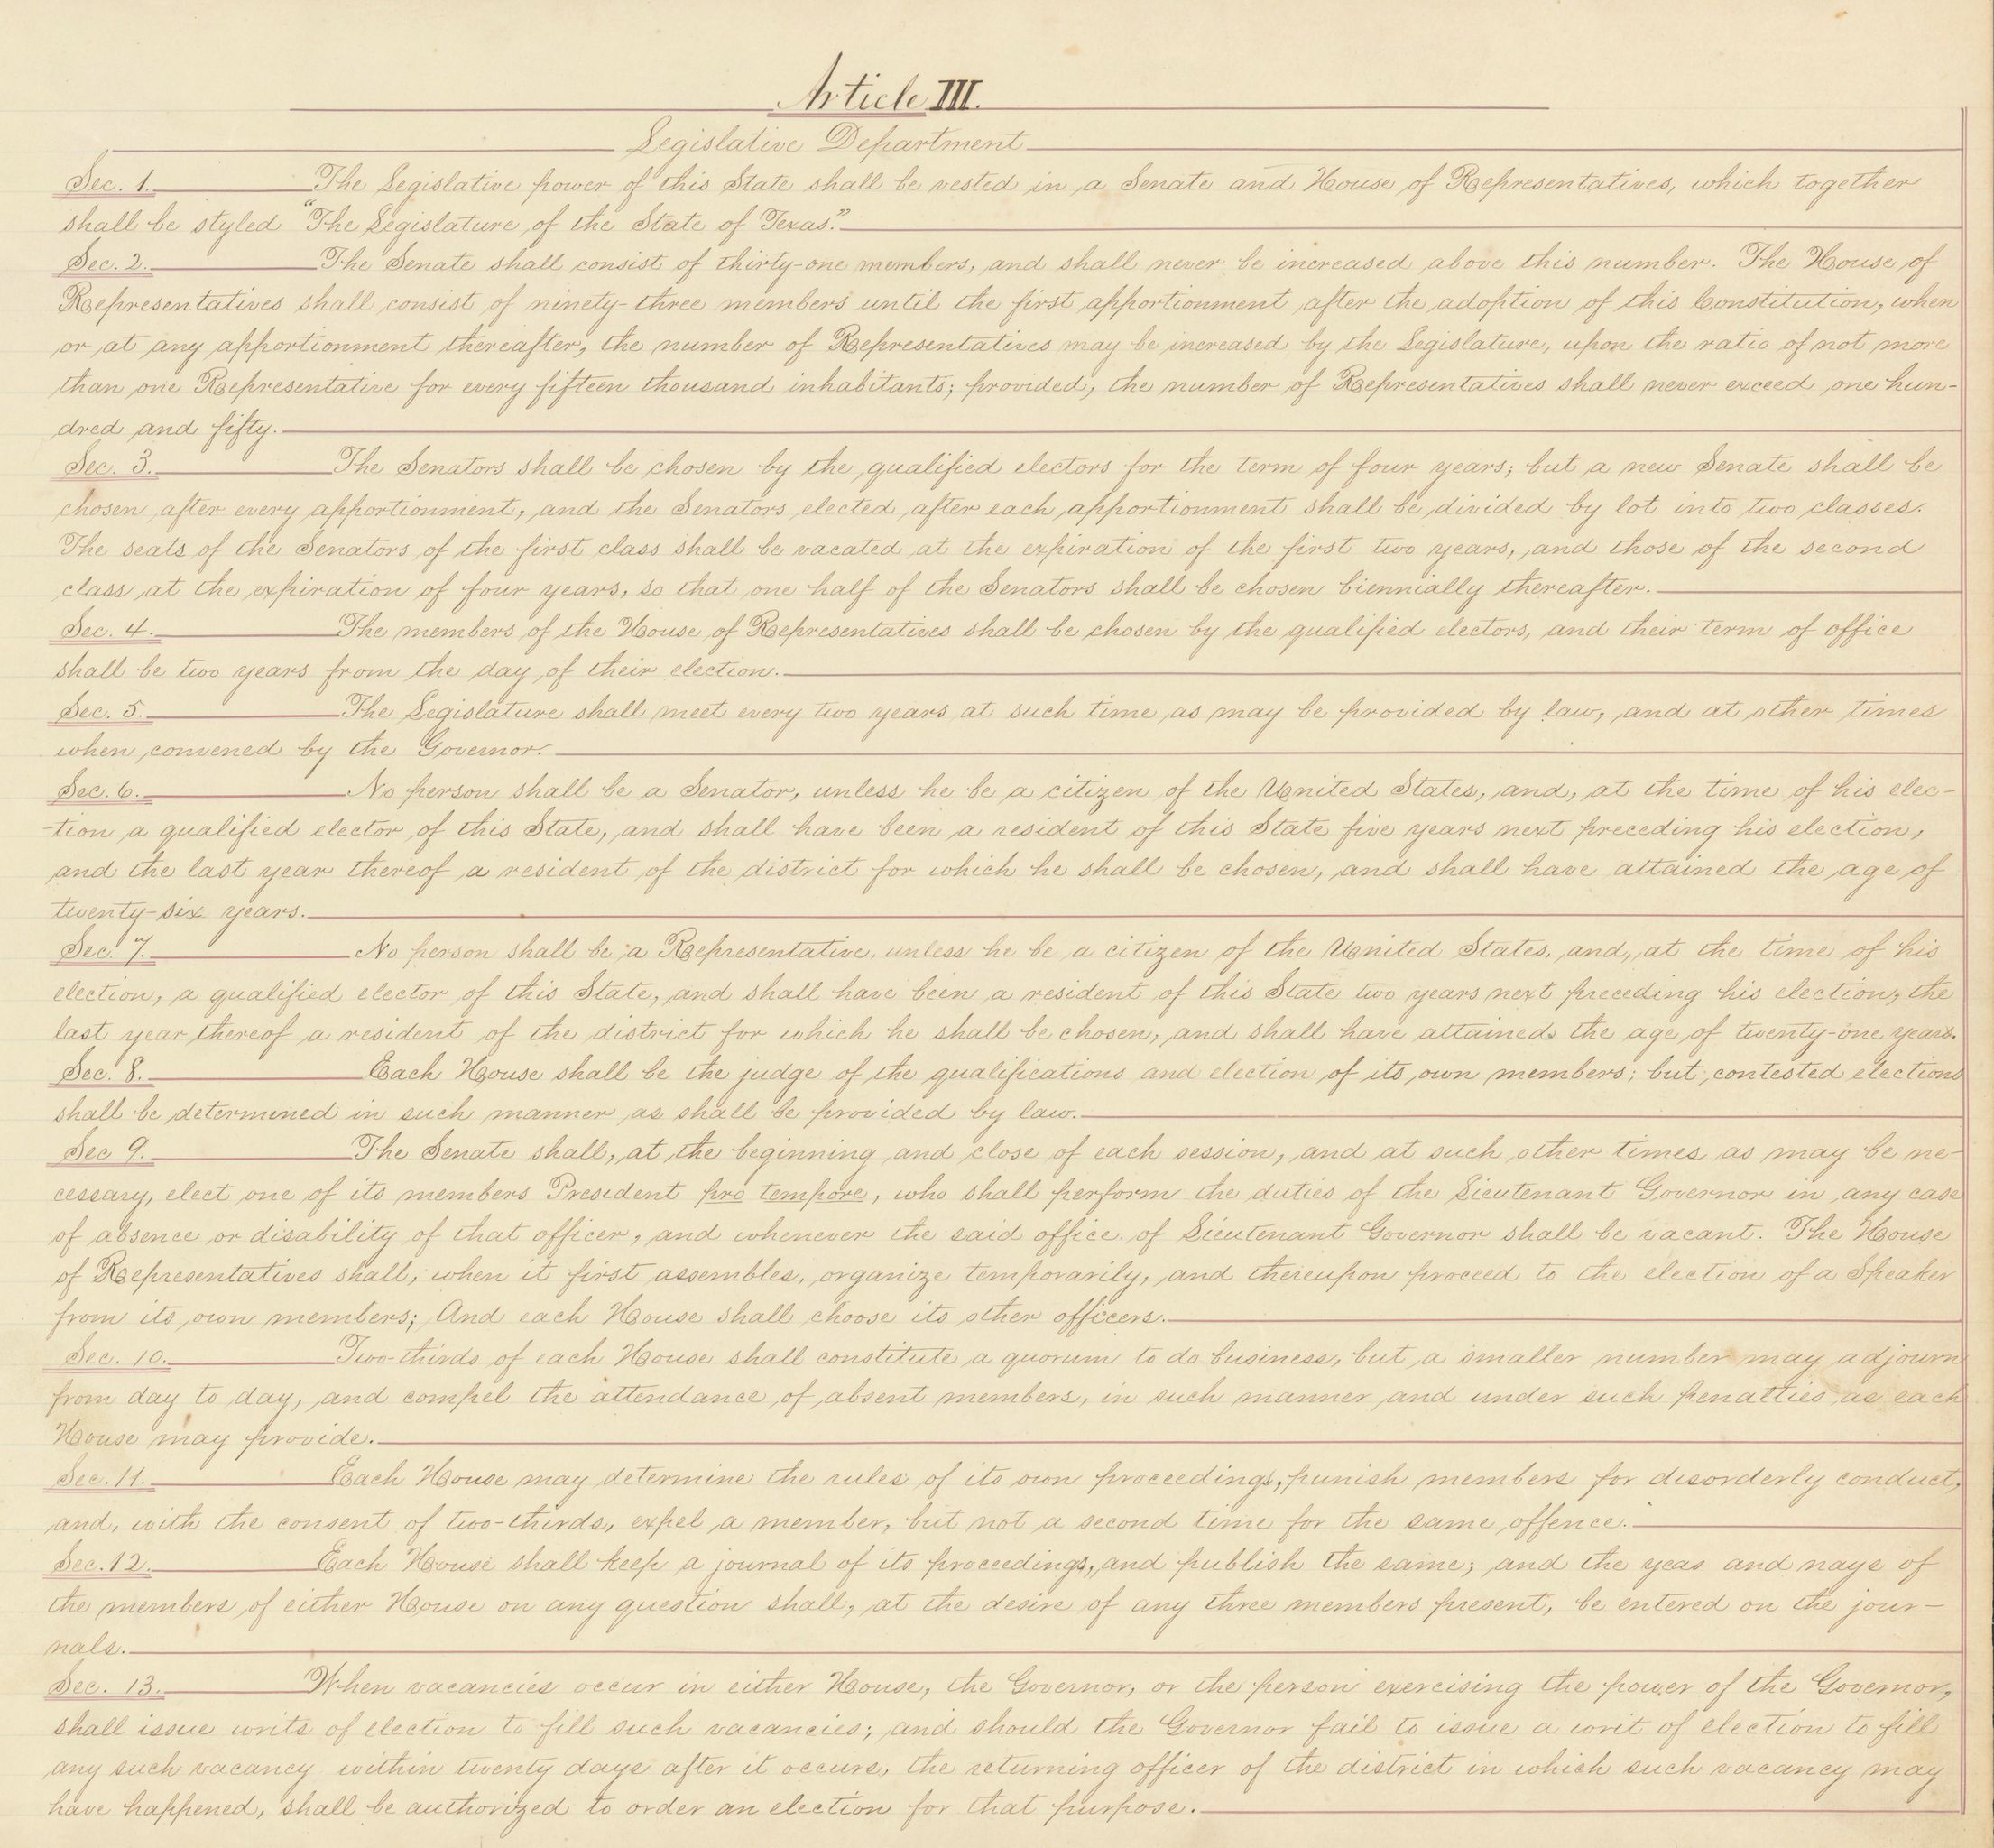 Article III.
Legislative Department
Sec. 1. The Legislative power of this State shall be vested in a Senate and House of Representatives, which together
shall be styled "The Legislature of the State of Texas."
Sec. 2. The Senate shall consist of thirty-one members, and shall never be increased above this number. The House of
Representatives shall consist of ninety-three members until the first apportionment after the adoption of this Constitution, when
or at any apportionment thereafter, the number of Representatives may be increased by the Legislature, upon the ratio of not more
than one Representative for every fifteen thousand inhabitants; provided, the number of Representatives shall never exceed one hun-
dred and fifty.
Sec. 3. The Senators shall be chosen by the qualified electors for the term of four years; but a new Senate shall be
chosen after every apportionment, and the Senators elected after each apportionment shall be divided by lot into two classes.
The seats of the Senators of the first class shall be vacated at the expiration of the first two years, and those of the second
class at the expiration of four years, so that one half of the Senators shall be chosen biennially thereafter.
Sec. 4. The members of the House of Representatives shall be chosen by the qualified electors, and their term of office
shall be two years from the day of their election.
Sec. 5. The Legislature shall meet every two years at such time as may be provided by law, and at other times
when convened by the Governor.
Sec. 6. No person shall be a Senator, unless he be a citizen of the United States, and, at the time of his elec-
-tion a qualified elector of this State, and shall have been a resident of this State five years next preceding his election,
and the last year thereof a resident of the district for which he shall be chosen, and shall have attained the age of
twenty-six years.
Sec. 7. No person shall be a Representative, unless he be a citizen of the United States, and, at the time of his
election, a qualified elector of this State, and shall have been a resident of this State two years next preceding his election, the
last year thereof a resident of the district for which he shall be chosen, and shall have attained the age of twenty-one years.
Sec. 8. Each House shall be the judge of the qualifications and election of its own members; but contested elections
shall be determined in such manner as shall be provided by law.
Sec 9. The Senate shall, at the beginning and close of each session, and at such other times as may be ne-
cessary, elect one of its members President pro tempore, who shall perform the duties of the Lieutenant Governor in any case
of absence or disability of that officer, and whenever the said office of Lieutenant Governor shall be vacant. The House
of Representatives shall, when it first assembles, organize temporarily, and thereupon proceed to the election of a Speaker
from its own members; And each House shall choose its other officers.
Sec. 10. Two-thirds of each House shall constitute a quorum to do business, but a smaller number may adjourn
from day to day, and compel the attendance of absent members, in such manner and under such penalties as each
House may provide.
Sec. 11. Each House may determine the rules of its own proceedings, punish members for disorderly conduct,
and, with the consent of two-thirds, expel a member, but not a second time for the same offence.
Sec. 12. Each House shall keep a journal of its proceedings, and publish the same; and the yeas and nays of
the members of either House on any question shall, at the desire of any three members present, be entered on the jour-
nals.
Sec. 13. When vacancies occur in either House, the Governor, or the person exercising the power of the Governor,
shall issue writs of election to fill such vacancies; and should the Governor fail to issue a writ of election to fill
any such vacancy within twenty days after it occurs, the returning officer of the district in which such vacancy may
have happened, shall be authorized to order an election for that purpose.